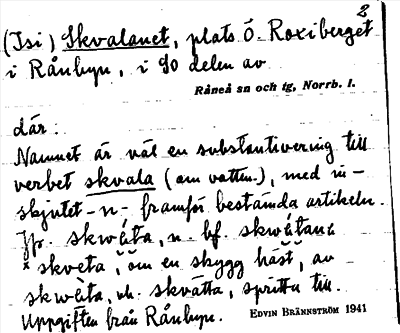 2
(Isi) Skvalanet, plats Ö. Roxiberget
i Rånbyn, i SO delen av
Råneå sn och tg, Norrb. l.
där:
Namnet är väl en substantivering till
verbet skvala (om vatten), med in-
skjutet -n- framför bestämda artikeln.
Jfr. skwáta, n. bf. skwátanä
skveta, om en skygg häst, av
skwàta, vb. skvätta, spritta till.
Uppgiften från Rånbyn.
EDVIN BRÄNNSTRÖM 1941